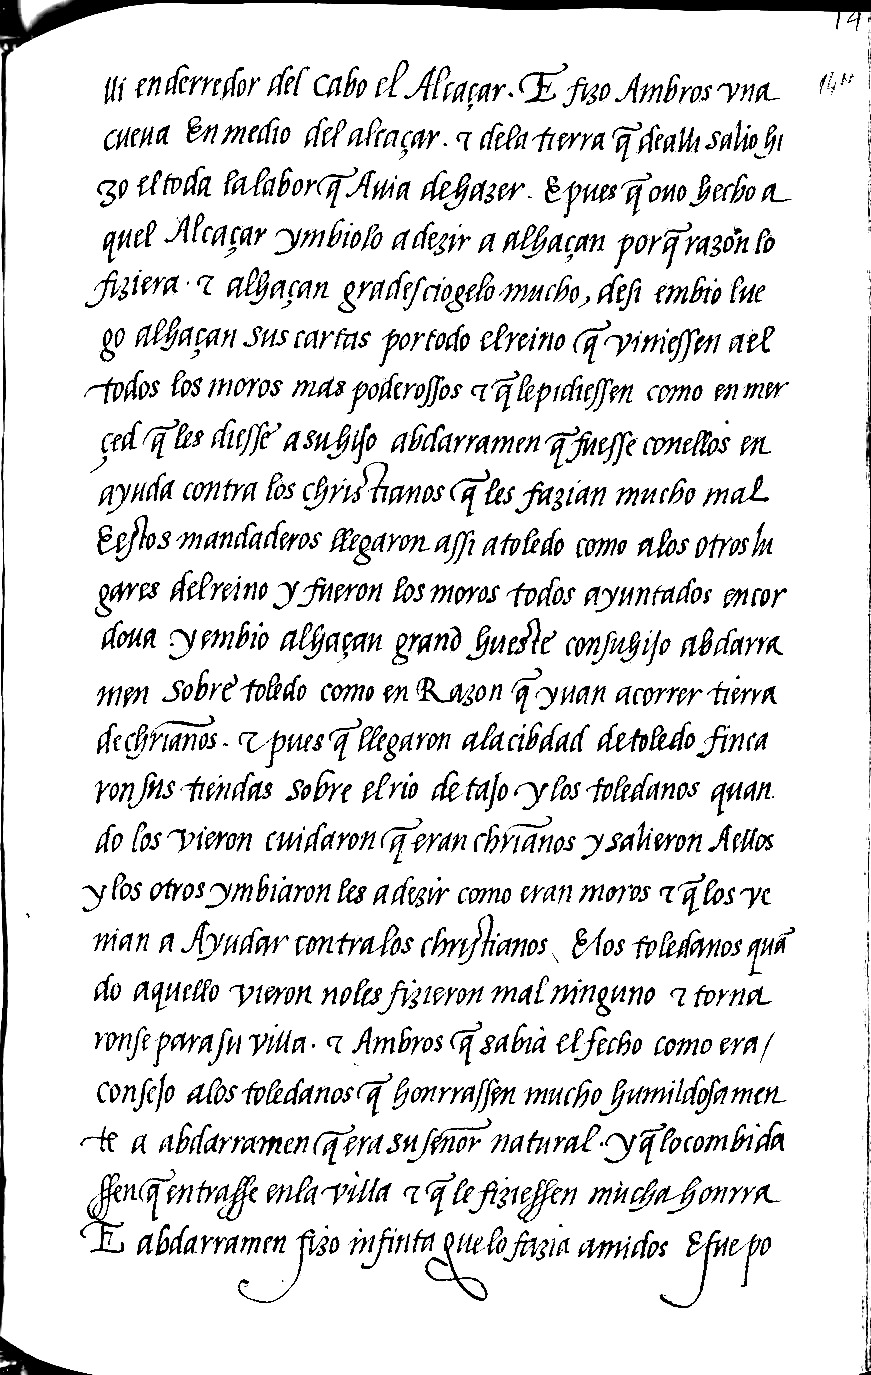 14
14
lli enderredor del Cabo el Alcaçar. E fizo Ambros vna
cueua En medio del alcaçar. ⁊ dela tierra q̃ dealli salio hi
zo el toda la labor q̃ Auia de hazer. E pues q̃ ouo hecho a
quel Alcaçar ymbiolo a dezir a alhaçan por q̃ razon lo
fiziera. ⁊ alhaçan gradesciogelo mucho, desi embio lue
go alhaçan sus cartas por todo el reino q̃ viniessen a el
todos los moros mas poderossos ⁊ q̃ le pidiessen como en mer
çed q̃ les diesse a su hijo abdarramen q̃ fuesse con ellos en
ayuda contra los christianos q̃ les fazian mucho mal
E estos mandaderos llegaron assi a toledo como a los otros lu
gares del reino y fueron los moros todos ayuntados en cor
doua y embio alhaçan grand hueste con su hijo abdarra
men sobre toledo como en Razon q̃ yuan acorrer tierra
de chrianos. ⁊ pues q̃ llegaron a la cibdad de toledo finca
ron sus tiendas sobre el rio de tajo y los toledanos quan
do los vieron cuidaron q̃ eran chrianos y salieron A ellos
y los otros ymbiaron les a dezir como eran moros ⁊ q̃ los ve
nian a Ayudar contra los christianos, E los toledanos quã
do aquello vieron no les fizieron mal ninguno ⁊ torna
ronse para su villa. ⁊ Ambros q̃ sabia el fecho como era /
consejo a los toledanos q̃ honrrassen mucho humildosamen
te a abdarramen q̃ era su señor natural. y q̃ lo combida
ssen q̃ entrasse en la villa ⁊ q̃ le fiziessen mucha honrra
E abdarramen fizo infinta que lo fazia amidos E fue po